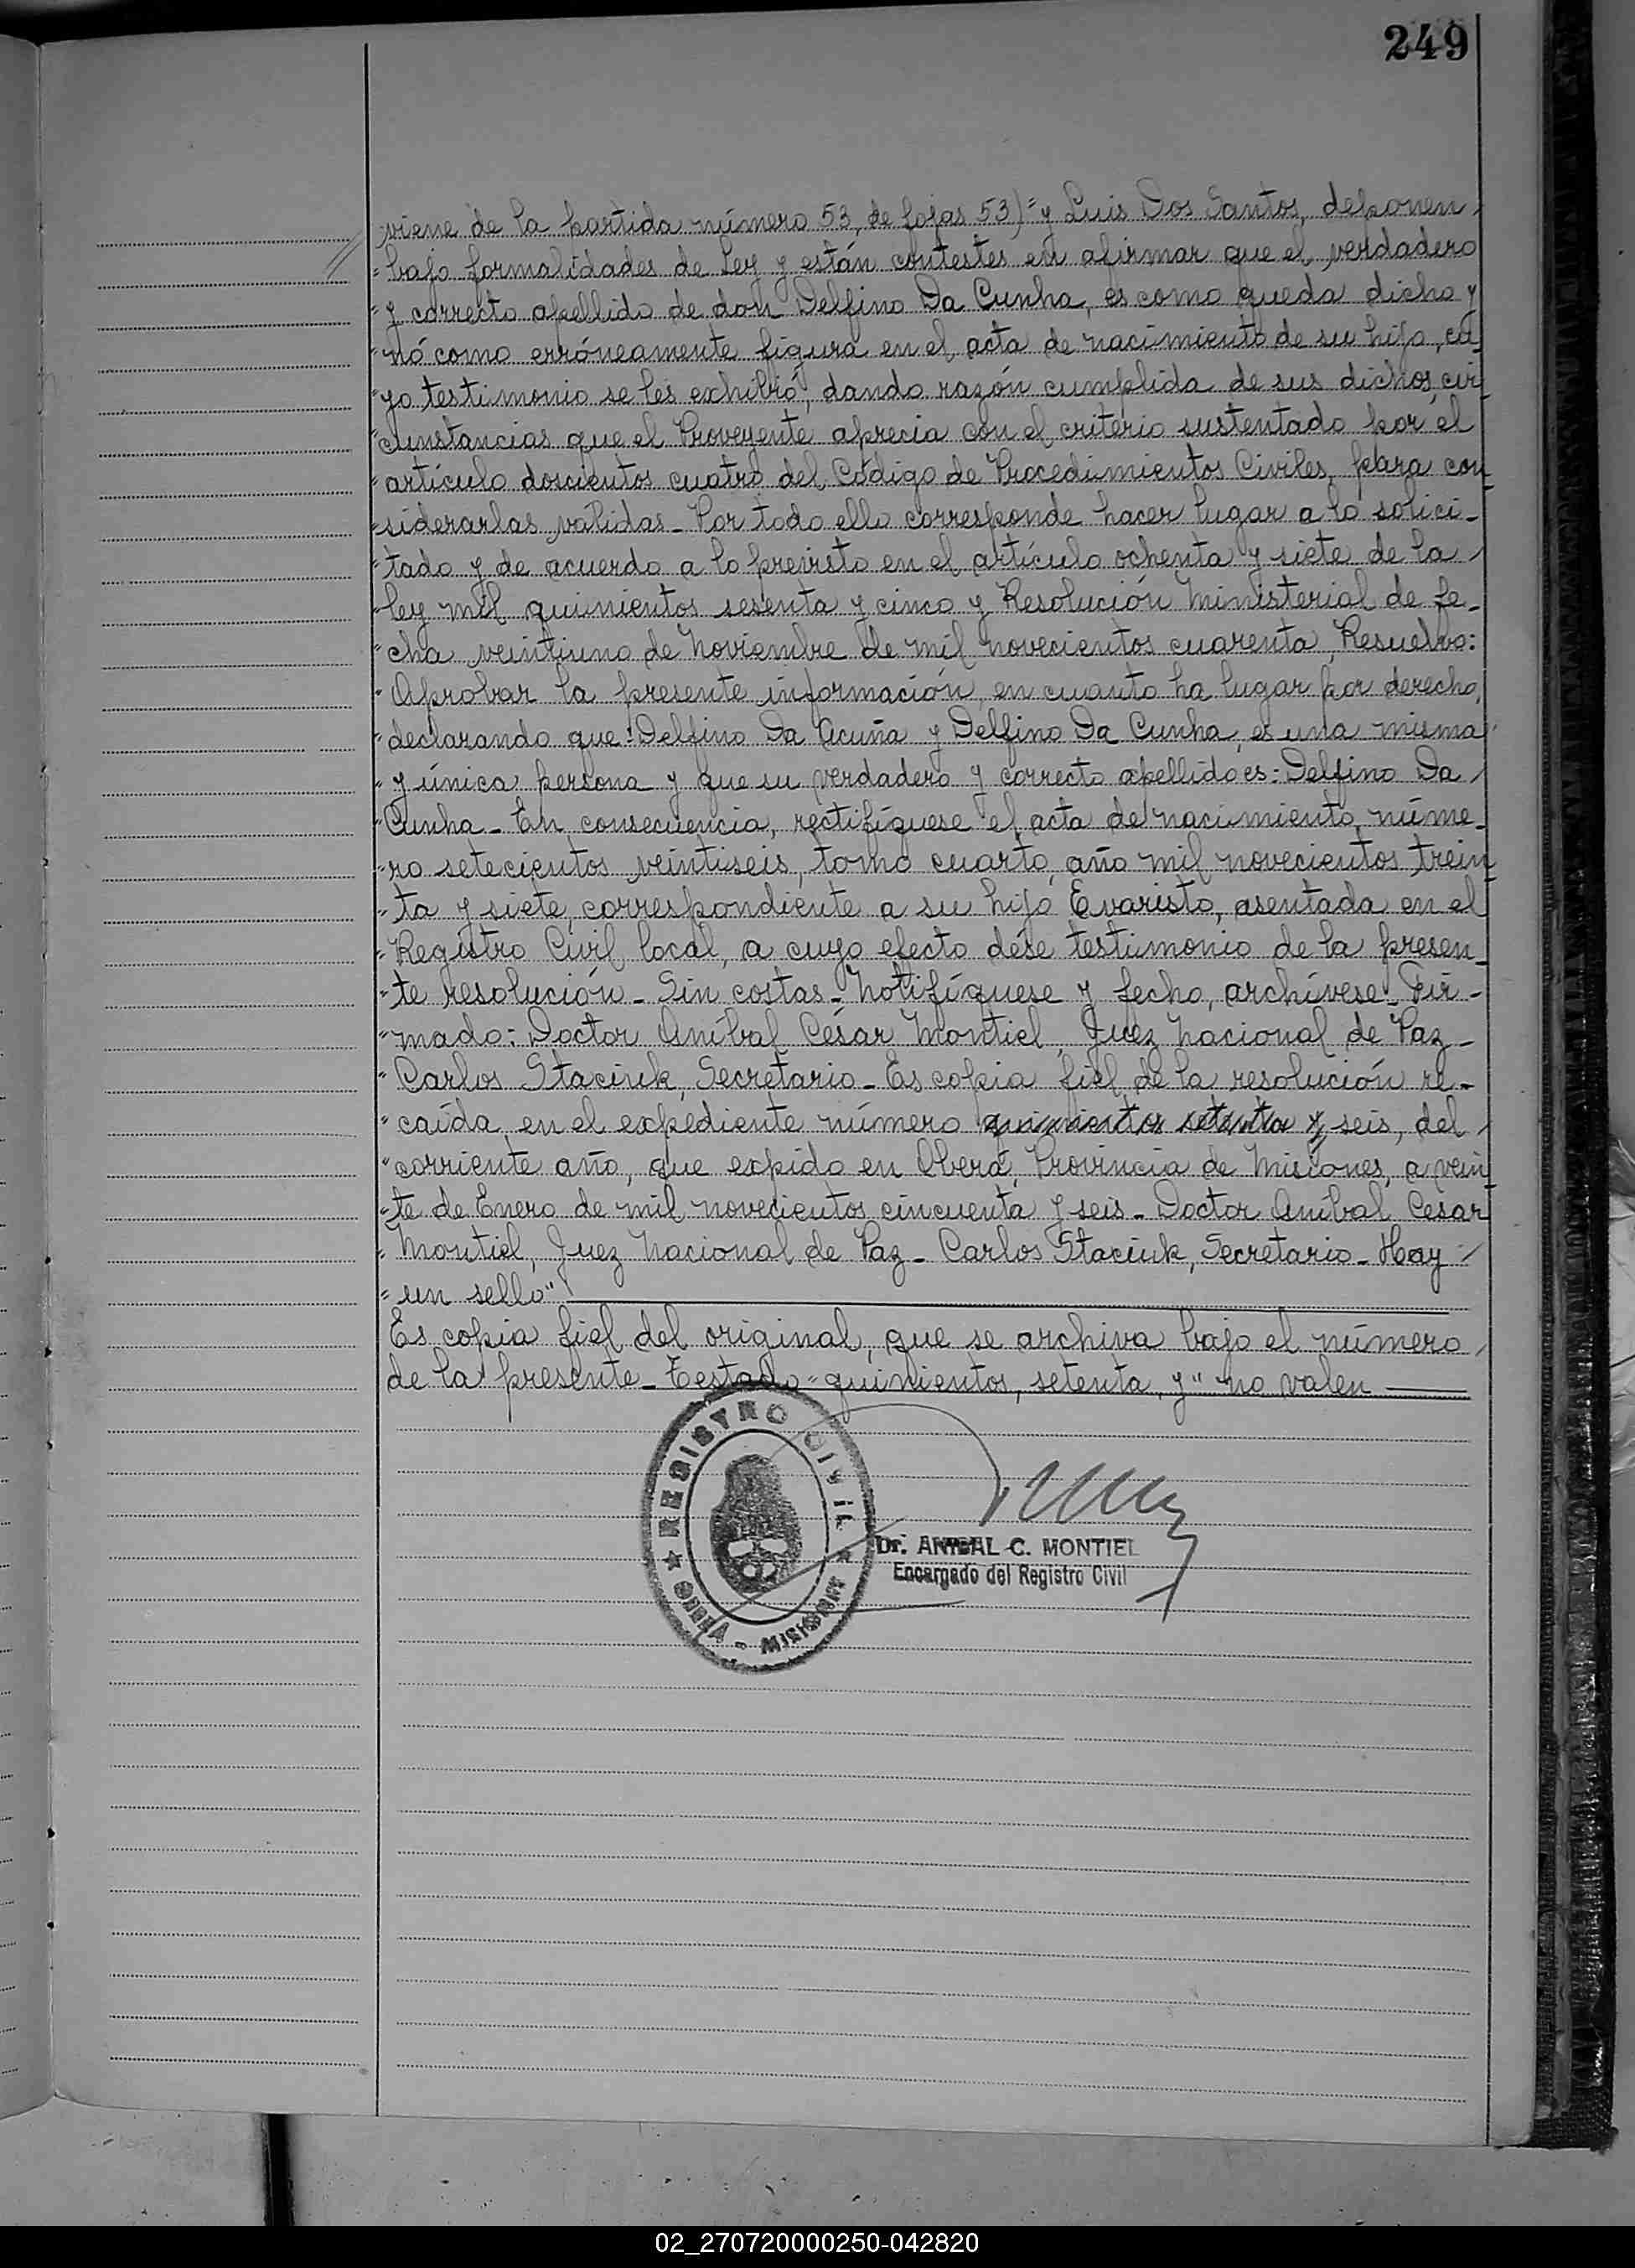 249
viene de la partida número 53, de fojas 53) " y Luis Dos Santos, deponen
" bajo formalidades de Ley y están contestes en afirmar que el verdadero
" y correcto apellido de don Delfino Da Cunha, es como queda dicho y
" nó como erróneamente figura en el acta de nacimiento de su hijo, cu
" yo testimonio se les exhibió, dando razón cumplida de sus dichos, cir
" cunstancias que el Proveyente aprecia con el criterio sustentado por el
" artículo doscientos cuatro del Código de Procedimientos Civiles, para con
" siderarlas válidas_ Por todo ello corresponde hacer lugar a lo solici_
" tado y de acuerdo a lo previsto en el artículo ochenta y siete de la
" ley mil quinientos sesenta y cinco y Resolución Ministerial de fe_
" cha veintiuno de Noviembre de mil novecientos cuarenta, Resuelvo:
" Aprobar la presente información, en cuanto ha lugar por derecho,
" declarando que: Delfino Da Acuña y Delfino Da Cunha, es una misma
" y única persona y que su verdadero y correcto apellido es: Delfino Da
" Cunha_ En consecuencia, rectifíquese el acta de nacimiento núme_
" ro setecientos veintiseis, tomo cuarto, año mil novecientos trein
" ta y siete, correspondiente a su hijo Evaristo, asentada en el
" Registro Civil local, a cuyo efecto dése testimonio de la presen_
" te resolución_ Sin costas_ Notifíquese y fecho, archívese_ Fir_
" mado: Doctor Aníbal César Montiel, Juez Nacional de Paz_
" Carlos Staciuk, Secretario_ Es copia fiel de la resolución re_
" caída en el expediente número quinientos setenta y seis, del
" corriente año, que expido en Oberá, Provincia de Misiones, a vein
" te de Enero de mil novecientos cincuenta y seis_ Doctor Aníbal Cesar
" Montiel, Juez Nacional de Paz_ Carlos Staciuk, Secretario_ Hay
" un sello"
Es copia fiel del original, que se archiva bajo el número
de la presente_ Testado "quinientos, setenta, y" no valen
REGISTRO CIVIL
OBERA - MISIONES
Dr. ANYBAL C. MONTIEL
Encargado del Registro Civil
02_270720000250-042820